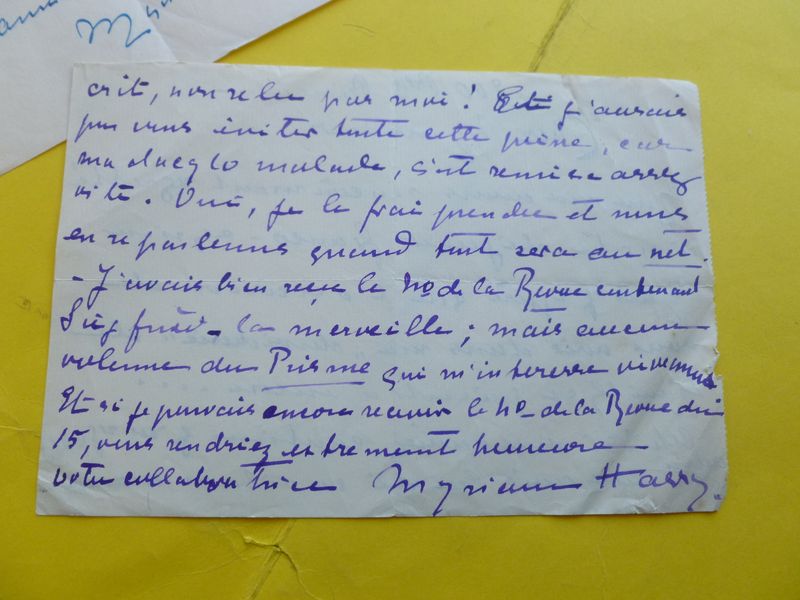 crit, non relu par moi ! Et j'aurais
pu vous éviter toute cette peine, car
ma dactylo malade, s'est remise assez
vite. Oui, je le ferai prendre et nous
en reparlerons quand tout sera au net.
- J'avais bien reçu le No de la Revue contenant
Siegfried - la merveille ; mais aucun
volume du Prisme qui m'intéresse vivement
Et si je pouvais encore recevoir le No de la Revue du
15, vous rendriez extrêmement heureuse
votre collaboratrice Myriam Harry